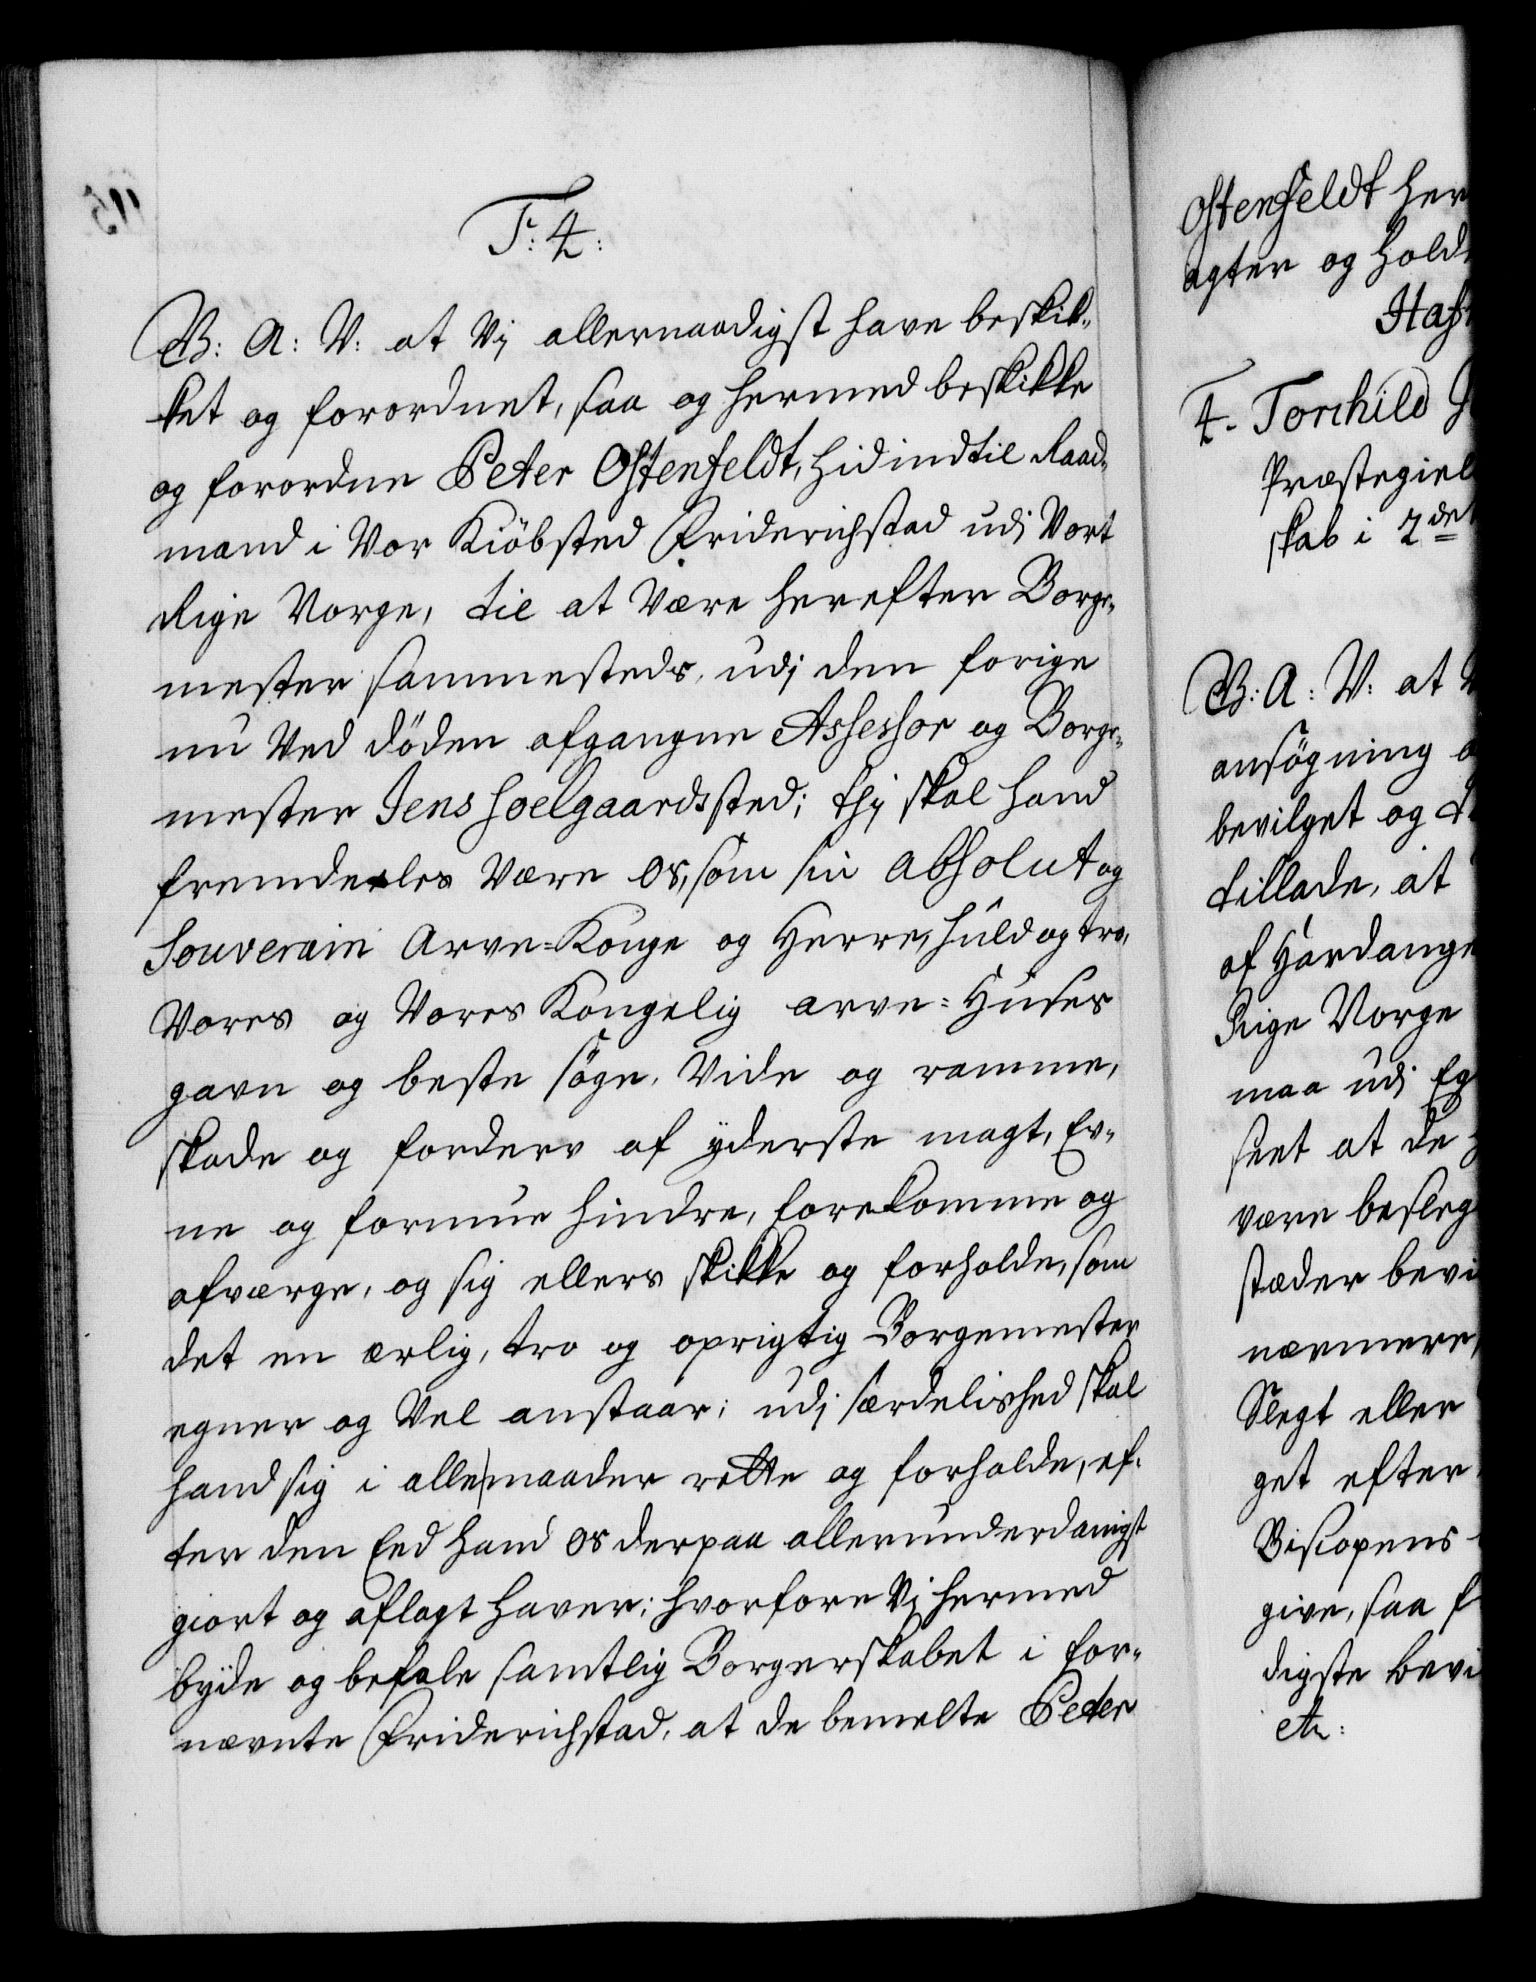 F: 4:
G: A: V: at Vj allernaadigst have beskik-
ket og forordnet, saa og hermed beskikke
og forordne Peter Ostenfeldt, hidindtil Raad-
mand i Vor Kiöbsted Friderichstad udj Vort
Rige Norge, til at Være herefter Borge-
mester sammesteds, udj den forige
nu Ved döden afgangne Assessor og Borge-
mester Jens Hoelgaards sted; thj skal hand
fremdeeles Være os, som sin absolut og
Souverain Arve-Konge og Herre, huld og tro,
Vores og Vores Kongelig arve-Huses
gavn og beste söge, Vide og ramme,
skade og forderv af yderste magt, Ev-
ne og formue hindre, forekomme og
afværge, og sig ellers skikke og forholde, som
det en ærlig, tro og oprigtig Borgemester
egner og Vel anstaar; udj særdelished skal
hand sig i alle maader rette og forholde, ef-
ter den Eed hand os derpaa allerunderdanigst
giort og aflagt haver; hvorfore Vj hermed
byde og befale samtlig Borgerskabet i for-
nævnte Friderichstad, at de bemelte Peter
Ostenfeldt her
agter og hold
4. Torchild
Præstegiel
skab i 2det
G: A: V: at V
ansögning
bevilget og t
tillade, at
af Hardange
Rige Norge
maa udj Eg
seet at de
være besleg
stæder bevi
nærmere,
Slegt eller
get efter
Biscopens
give, saa f
digste bevi
etc: